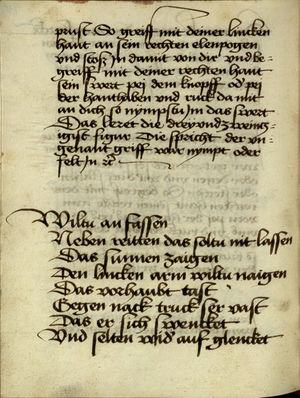 prust So greiff mit deiner lincken
hant an sein rechten elenpogen
vnd stoß in damit von dir vnd be-
greiff mit deiner rechten hant
sein swert pei dem knopff od pei
der hanthaben vnd ruck da mit
an dich so nympstu im das swert
Das leret die drevndzweintz-
igist figur Die spricht der vn-
genant griff war nympt oder
felt in
Wiltu an fassen
Neben reitten das soltu nit lassen
Das sunnen zaigen
Den lincken arm wiltu naigen
Das vorhaubt tast
Gegen nack truck ser vast
Das er sich swencket
Vnd selten wid auf glencket